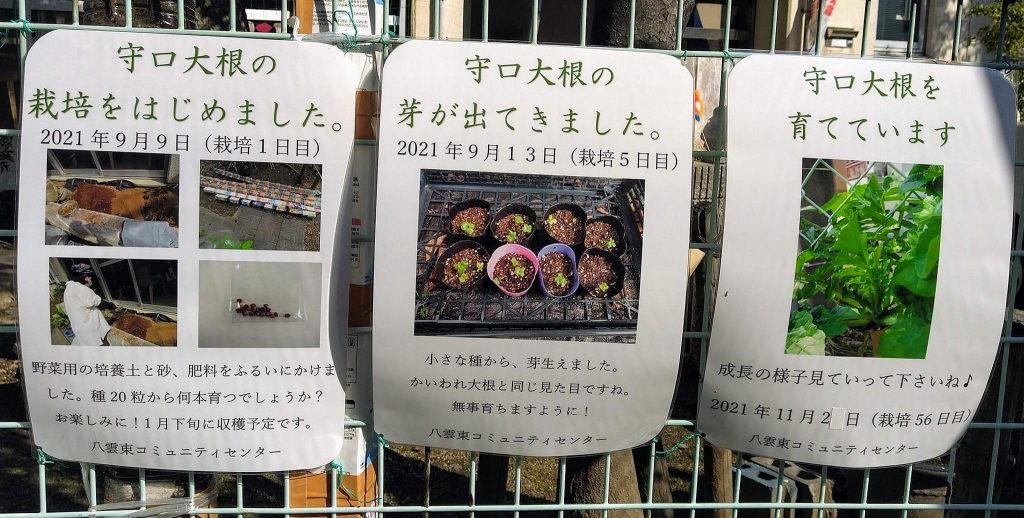 守口大根の
栽培をはじめました。
2021年9月9日（栽培1日目）
野菜用の培養土と砂、肥料をふるいにかけま
した。種20粒から何本育つでしょうか？
お楽しみに！1月下旬に収穫予定です。
八雲東コミュニティセンター
守口大根の
芽が出てきました。
2021年9月13日（栽培5日目）
小さな種から、芽生えました。
かいわれ大根と同じ見た目ですね。
無事育ちますように！
八雲東コミュニティセンター
守口大根を
育てています
成長の様子見ていって下さいね♪
2021年11月2日（栽培56日目）
八雲東コミュニティセンター